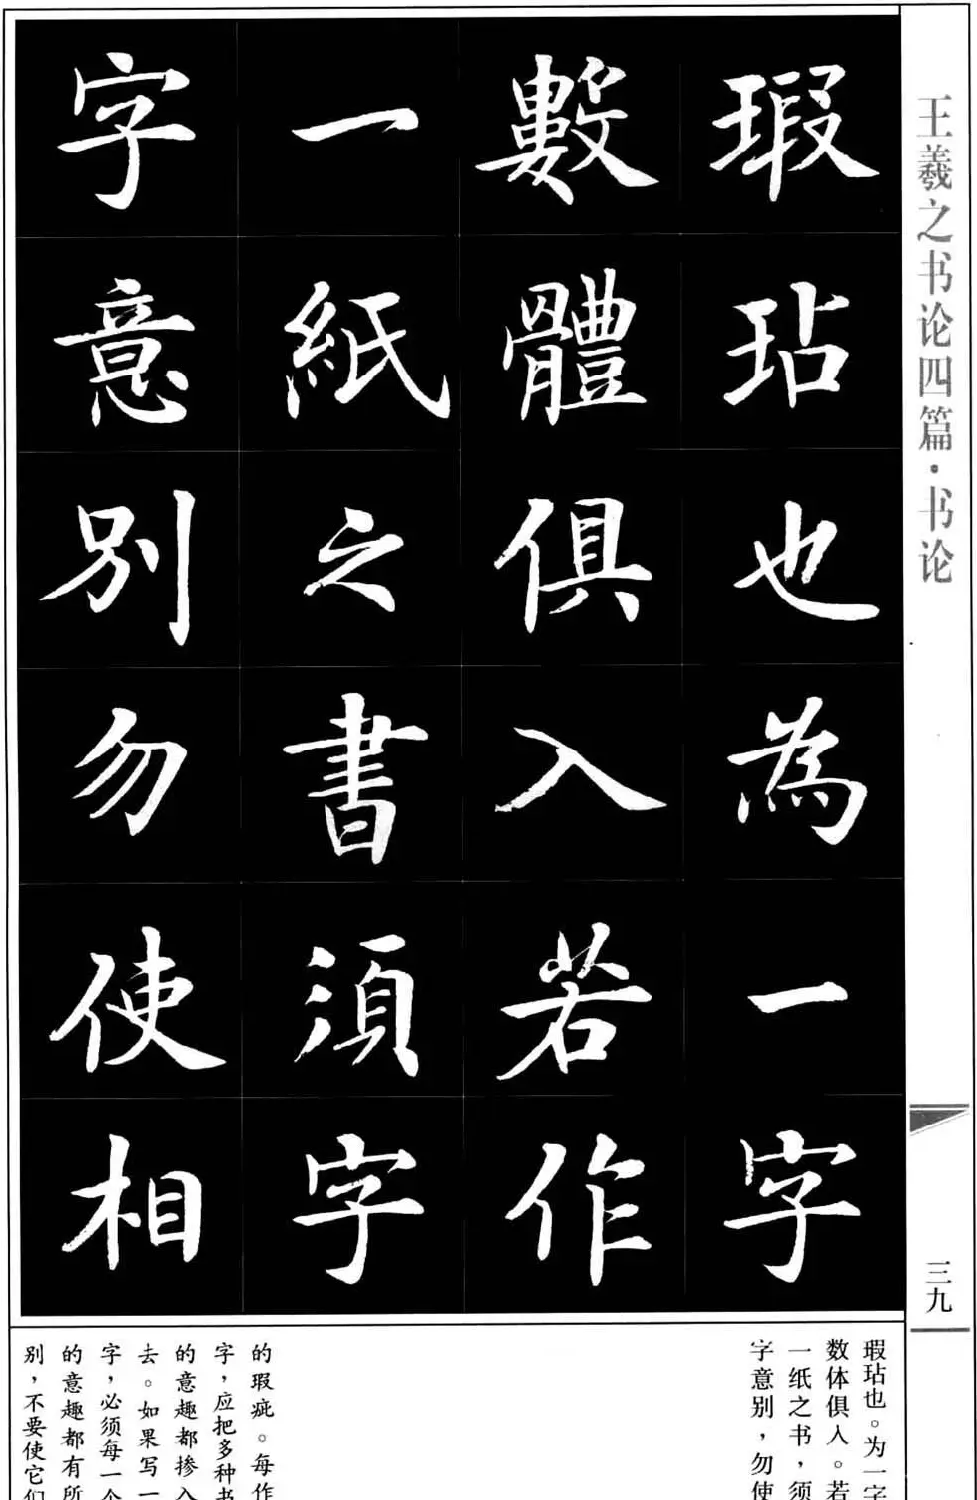 王羲之书论四篇·书论
三九
瑕玷也為一字
數體俱入若作
一紙之書須字
字意別勿使相
瑕玷也。为一字
数体俱入。若
一纸之书，须
字意别，勿使
的瑕疵。每作
字，应把多种书
的意趣都掺入
去。如果写一
字，必须每一个
的意趣都有所
别，不要使它们